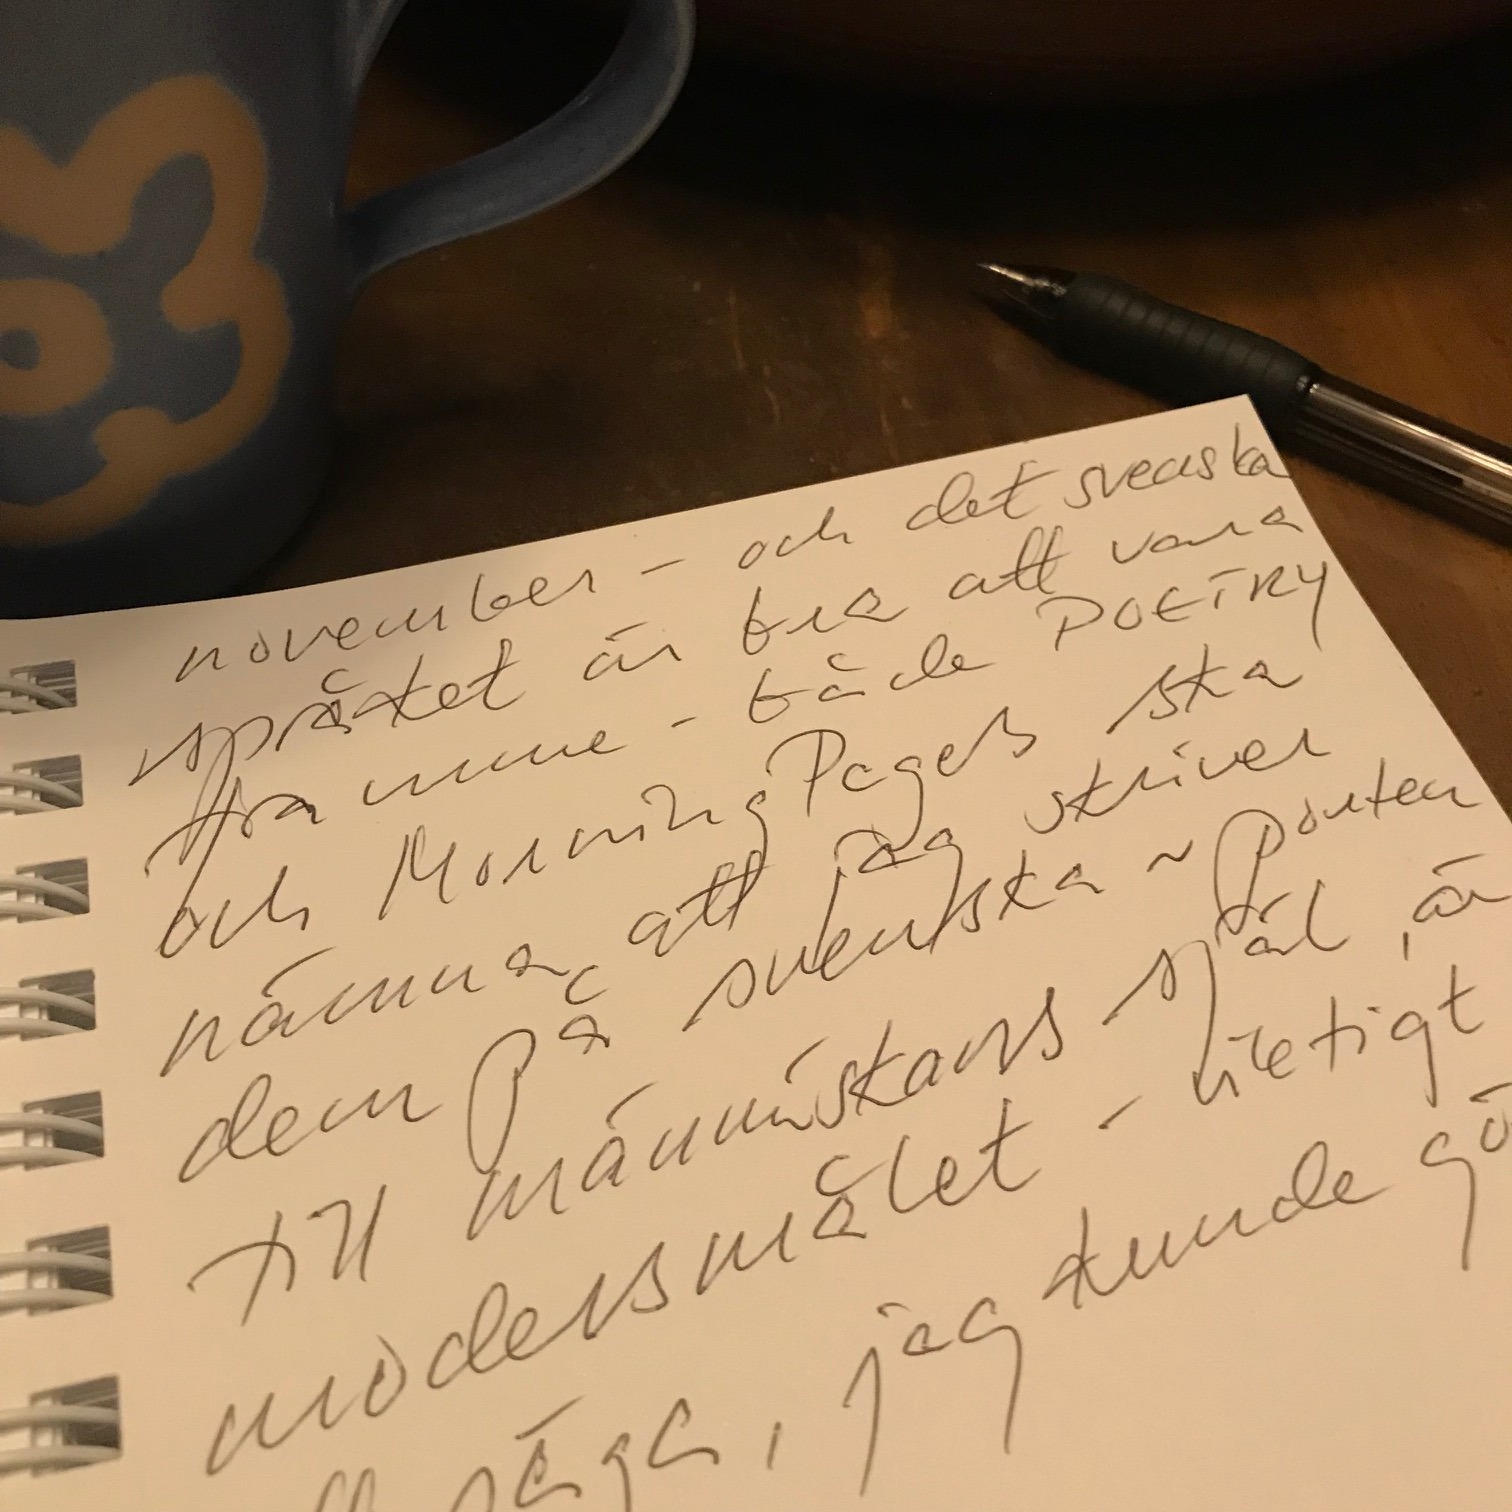 november - och det svenska
språket är bra att vara
framme - både POETRY
och Morning Pages ska
nämna att jag skriver
dem på svenska ~ Porten
till människans själ, är
modersmålet - viktigt
att säga, jag kunde gö